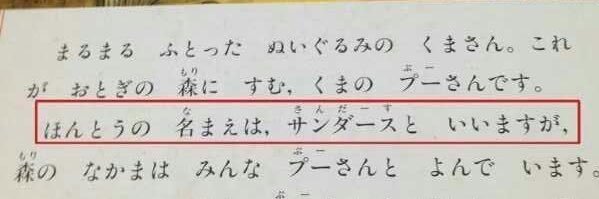 まるまる ふとった ぬいぐるみの くまさん。これ
が おとぎの 森に すむ, くまの プーさんです。
ほんとうの 名まえは, サンダースと いいますが,
森の なかまは みんな プーさんと よんで います。